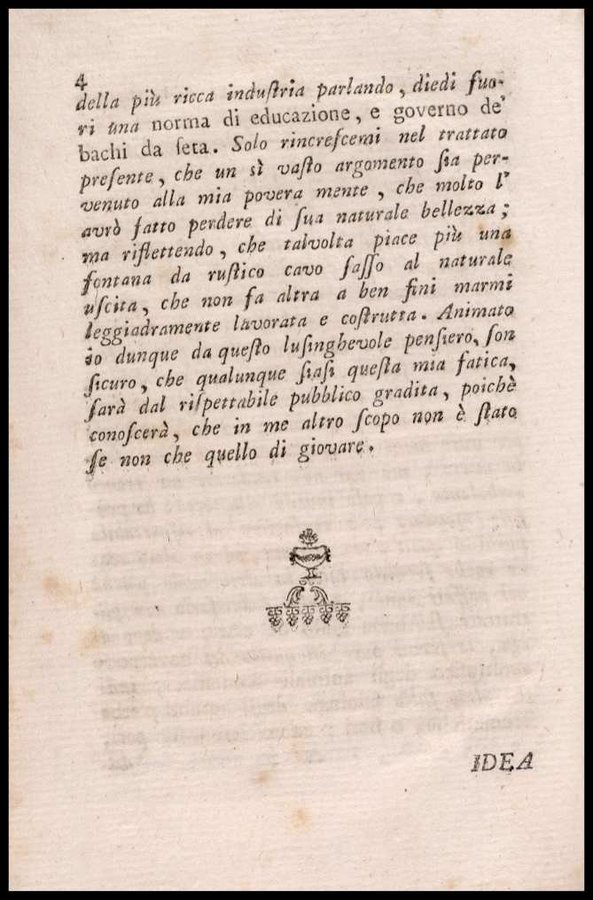 4
della più ricca induſtria parlando, diedi fuo-
ri una norma di educazione, e governo de'
bachi da ſeta. Solo rincreſcemi nel trattato
preſente, che un sì vaſto argomento ſia per-
venuto alla mia povera mente, che molto l'
avrò fatto perdere di ſua naturale bellezza;
ma riflettendo, che talvolta piace più una
fontana da ruſtico cavo ſaſſo al naturale
uſcita, che non fa altra a ben fini marmi
leggiadramente lavorata e coſtrutta. Animato
io dunque da queſto luſinghevole penſiero, ſon
ſicuro, che qualunque ſiaſi queſta mia fatica,
ſarà dal riſpettabile pubblico gradita, poichè
conoſcerà, che in me altro ſcopo non è ſtato
ſe non che quello di giovare.
IDEA